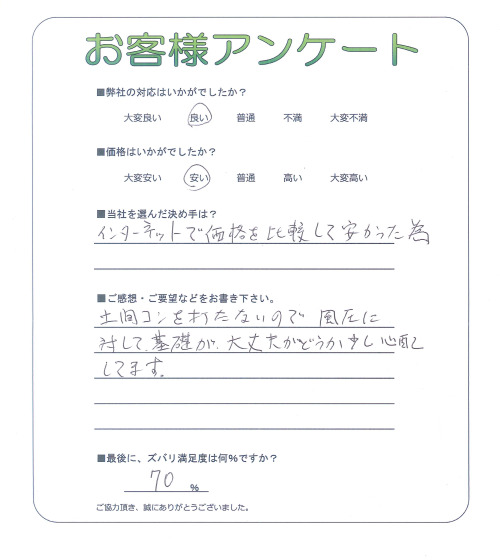 お客様アンケート
■弊社の対応はいかがでしたか？
大変良い 良い 普通 不満 大変不満
■価格はいかがでしたか？
大変安い 安い 普通 高い 大変高い
■当社を選んだ決め手は？
インターネットで価格を比較して安かった為
■ご感想・ご要望などをお書き下さい。
土間コンを打たないので 風圧に
対して、基礎が、大丈夫かどうか少し心配
してます。
■最後に、ズバリ満足度は何％ですか？
70 ％
ご協力頂き、誠にありがとうございました。